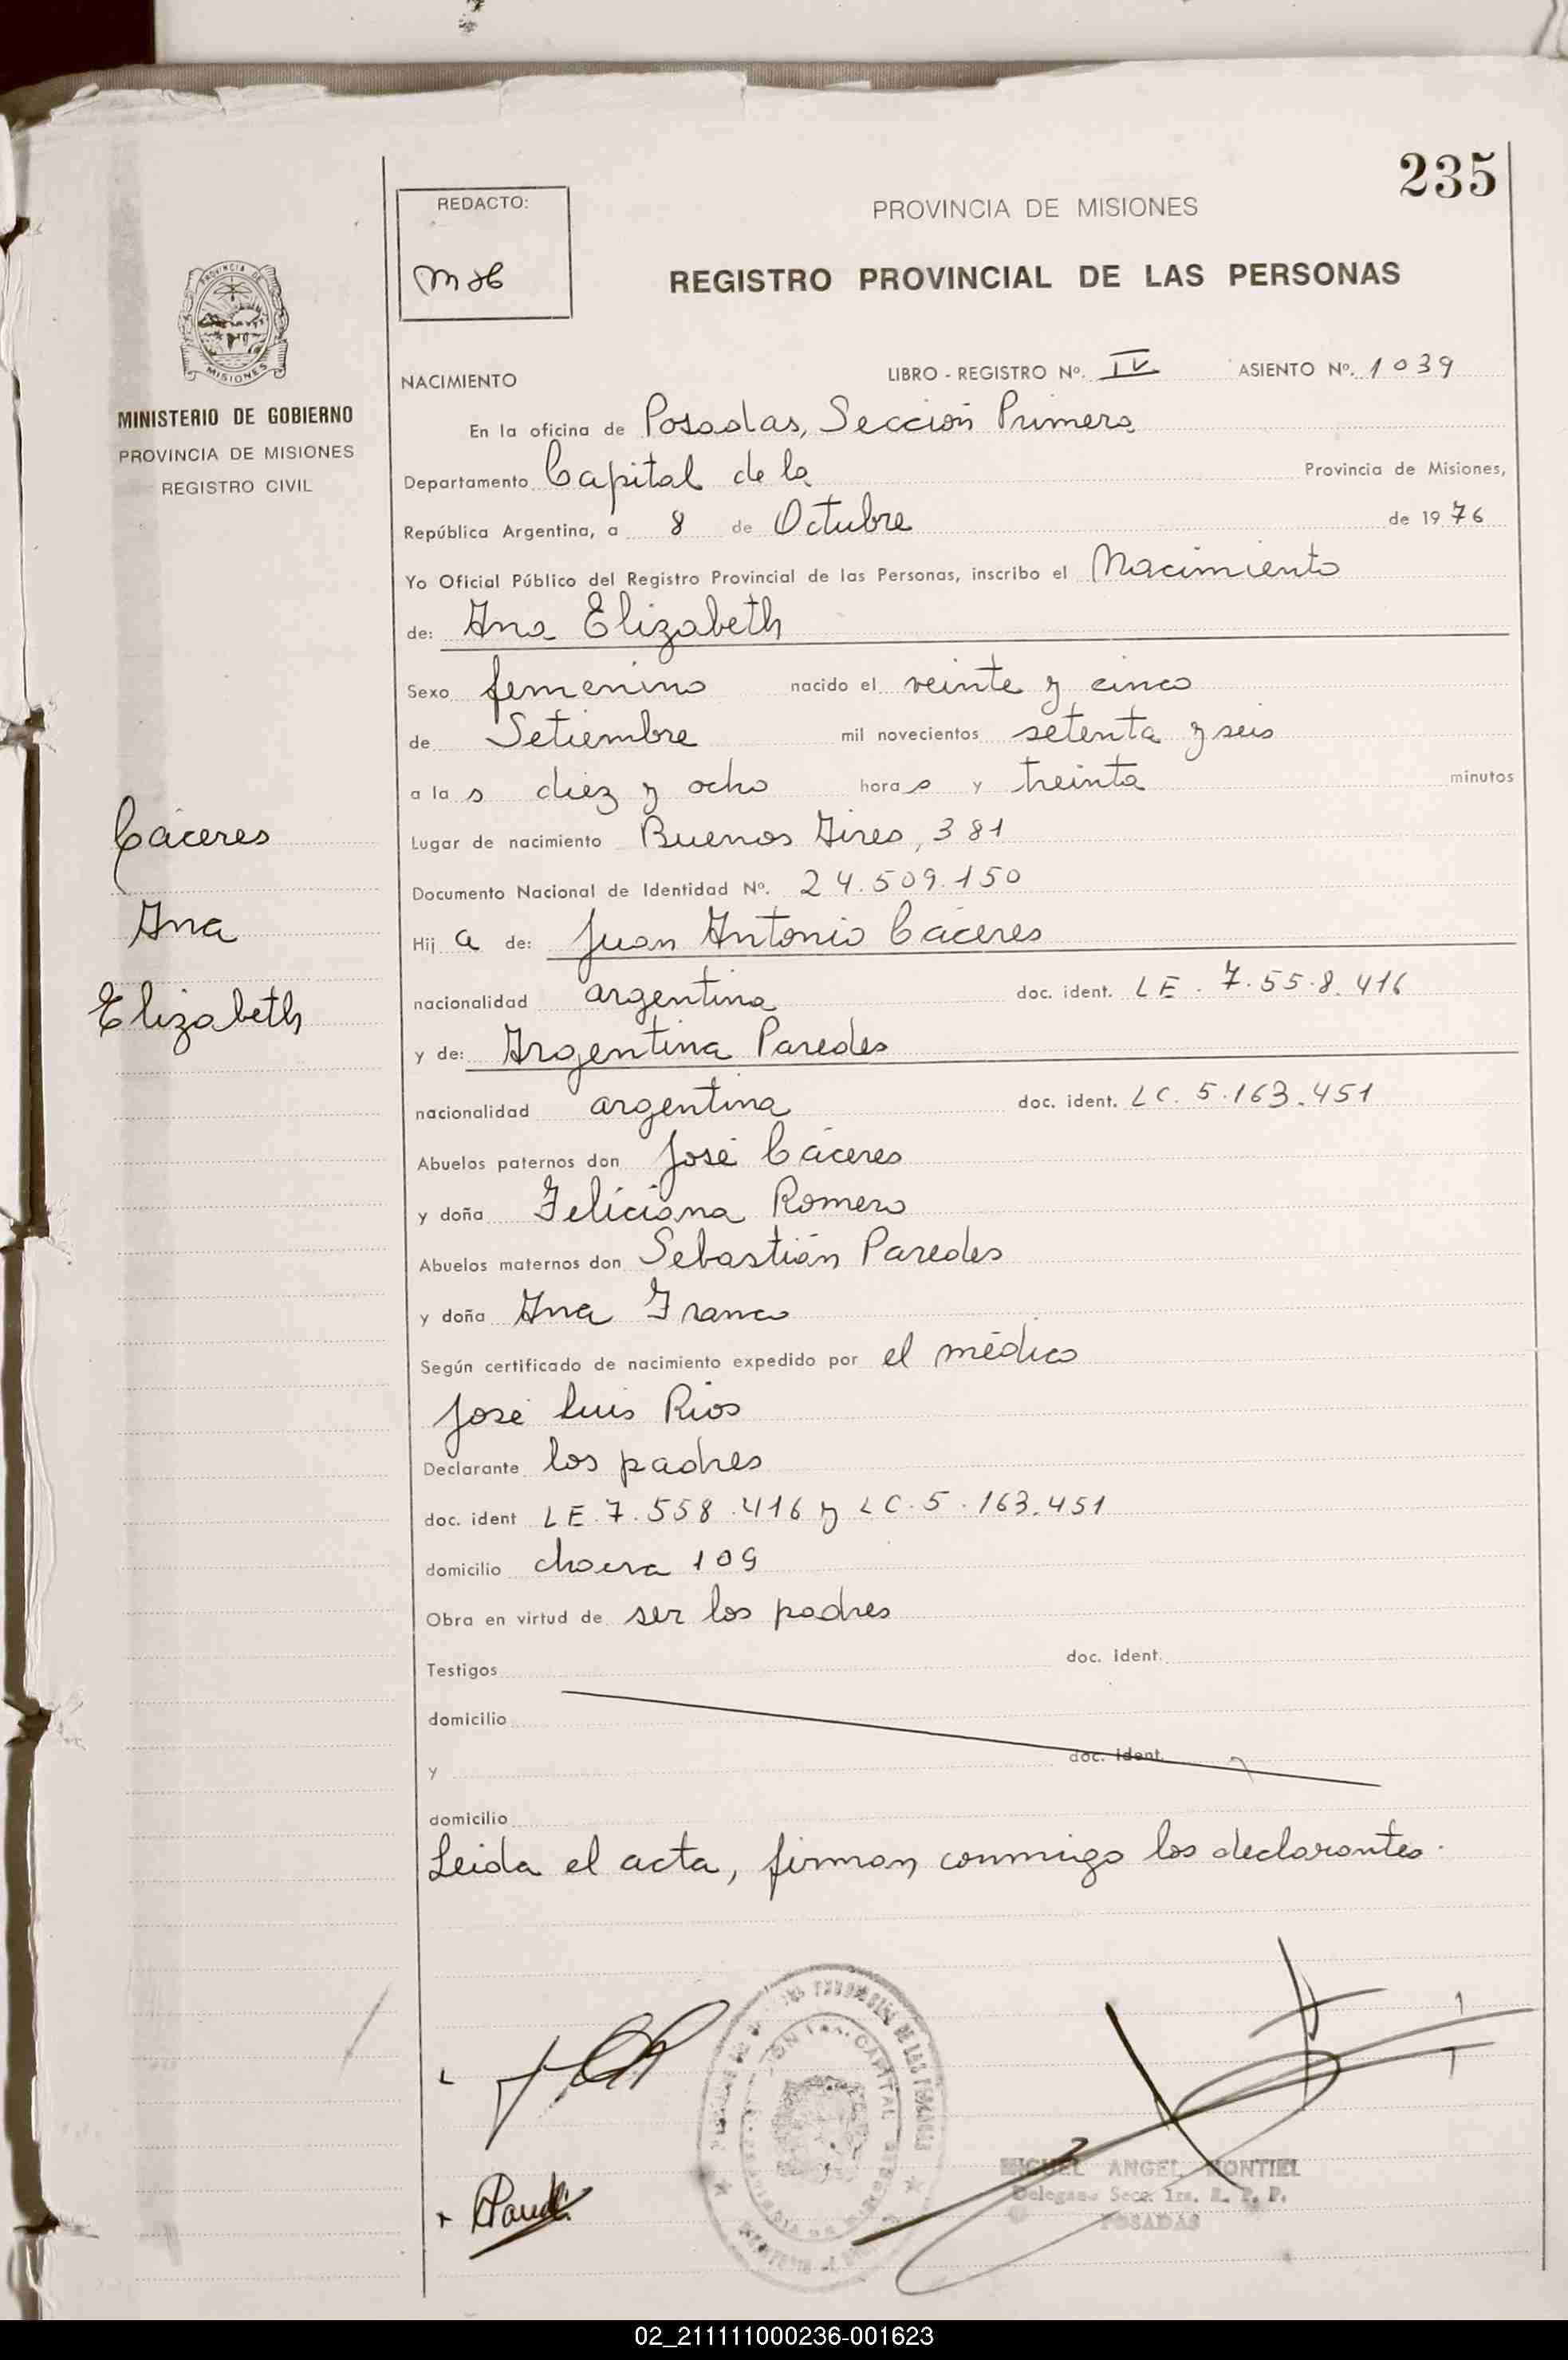 235
REDACTO:
PROVINCIA DE MISIONES
REGISTRO PROVINCIAL DE LAS PERSONAS
PROVINCIA DE
MISIONES
MINISTERIO DE GOBIERNO
PROVINCIA DE MISIONES
REGISTRO CIVIL
NACIMIENTO LIBRO - REGISTRO Nº. IV ASIENTO Nº. 1039
En la oficina de Posadas, Sección Primera
Departamento Capital de la Provincia de Misiones,
República Argentina, a 8 de Octubre de 1976
Yo Oficial Público del Registro Provincial de las Personas, inscribo el Nacimiento
de: Ana Elizabeth
Sexo femenino nacido el veinte y cinco
de Setiembre mil novecientos setenta y seis
a la s diez y ocho hora s y treinta minutos
Lugar de nacimiento Buenos Aires, 381
Documento Nacional de Identidad Nº. 24.509.150
Hij a de: Juan Antonio Cáceres
nacionalidad argentina doc. ident. LE. 7.558.416
y de: Argentina Paredes
nacionalidad argentina doc. ident. LC. 5.163.451
Abuelos paternos don José Cáceres
y doña Feliciana Romero
Abuelos maternos don Sebastián Paredes
y doña Ana Franco
Según certificado de nacimiento expedido por el médico
José Luis Rios
Declarante los padres
doc. ident LE. 7.558.416 y LC. 5.163.451
domicilio chacra 109
Obra en virtud de ser los padres
Testigos doc. ident.
domicilio
y doc. ident.
domicilio
Leida el acta, firman conmigo los declarantes.
Cáceres
Ana
Elizabeth
CAPITAL
MIGUEL ANGEL MONTIEL
Delegado Secc. 1ra. R. P. P.
POSADAS
02_211111000236-001623